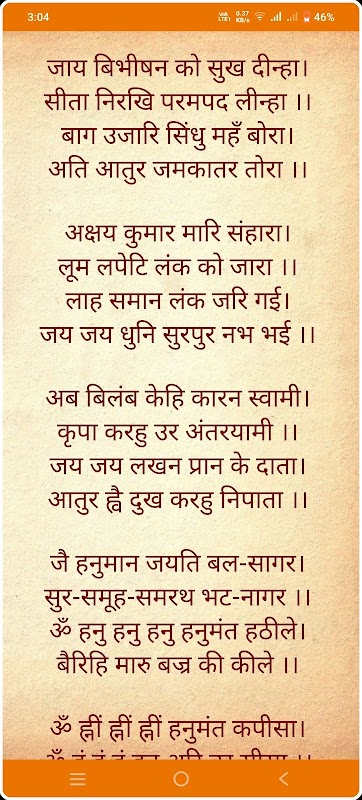 3:04
VoWiFi LTE1 0.37 KB/S 46%
जाय बिभीषन को सुख दीन्हा।
सीता निरखि परमपद लीन्हा ।।
बाग उजारि सिंधु महँ बोरा।
अति आतुर जमकातर तोरा ।।
अक्षय कुमार मारि संहारा।
लूम लपेटि लंक को जारा ।।
लाह समान लंक जरि गई।
जय जय धुनि सुरपुर नभ भई ।।
अब बिलंब केहि कारन स्वामी।
कृपा करहु उर अंतरयामी ।।
जय जय लखन प्रान के दाता।
आतुर ह्वै दुख करहु निपाता ।।
जै हनुमान जयति बल-सागर।
सुर-समूह-समरथ भट-नागर ।।
ॐ हनु हनु हनु हनुमंत हठीले।
बैरिहि मारु बज्र की कीले ।।
ॐ ह्नीं ह्नीं ह्नीं हनुमंत कपीसा।